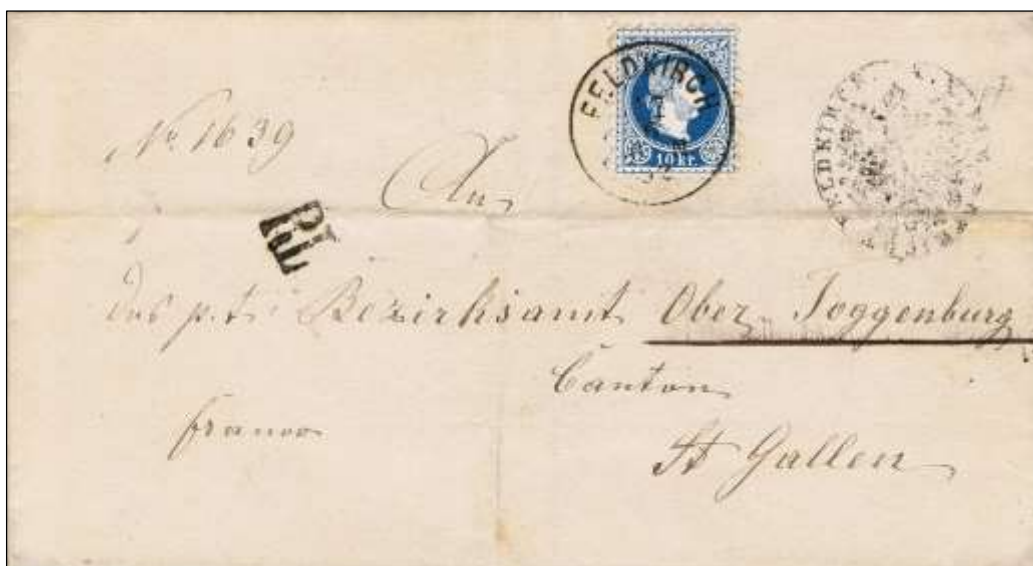 FELDKIRCH
10 kr.
FELDKIRCH
No 1639
An
P.D.
das p.t. Bezirksamt Ober-Toggenburg
Canton
franco
St Gallen